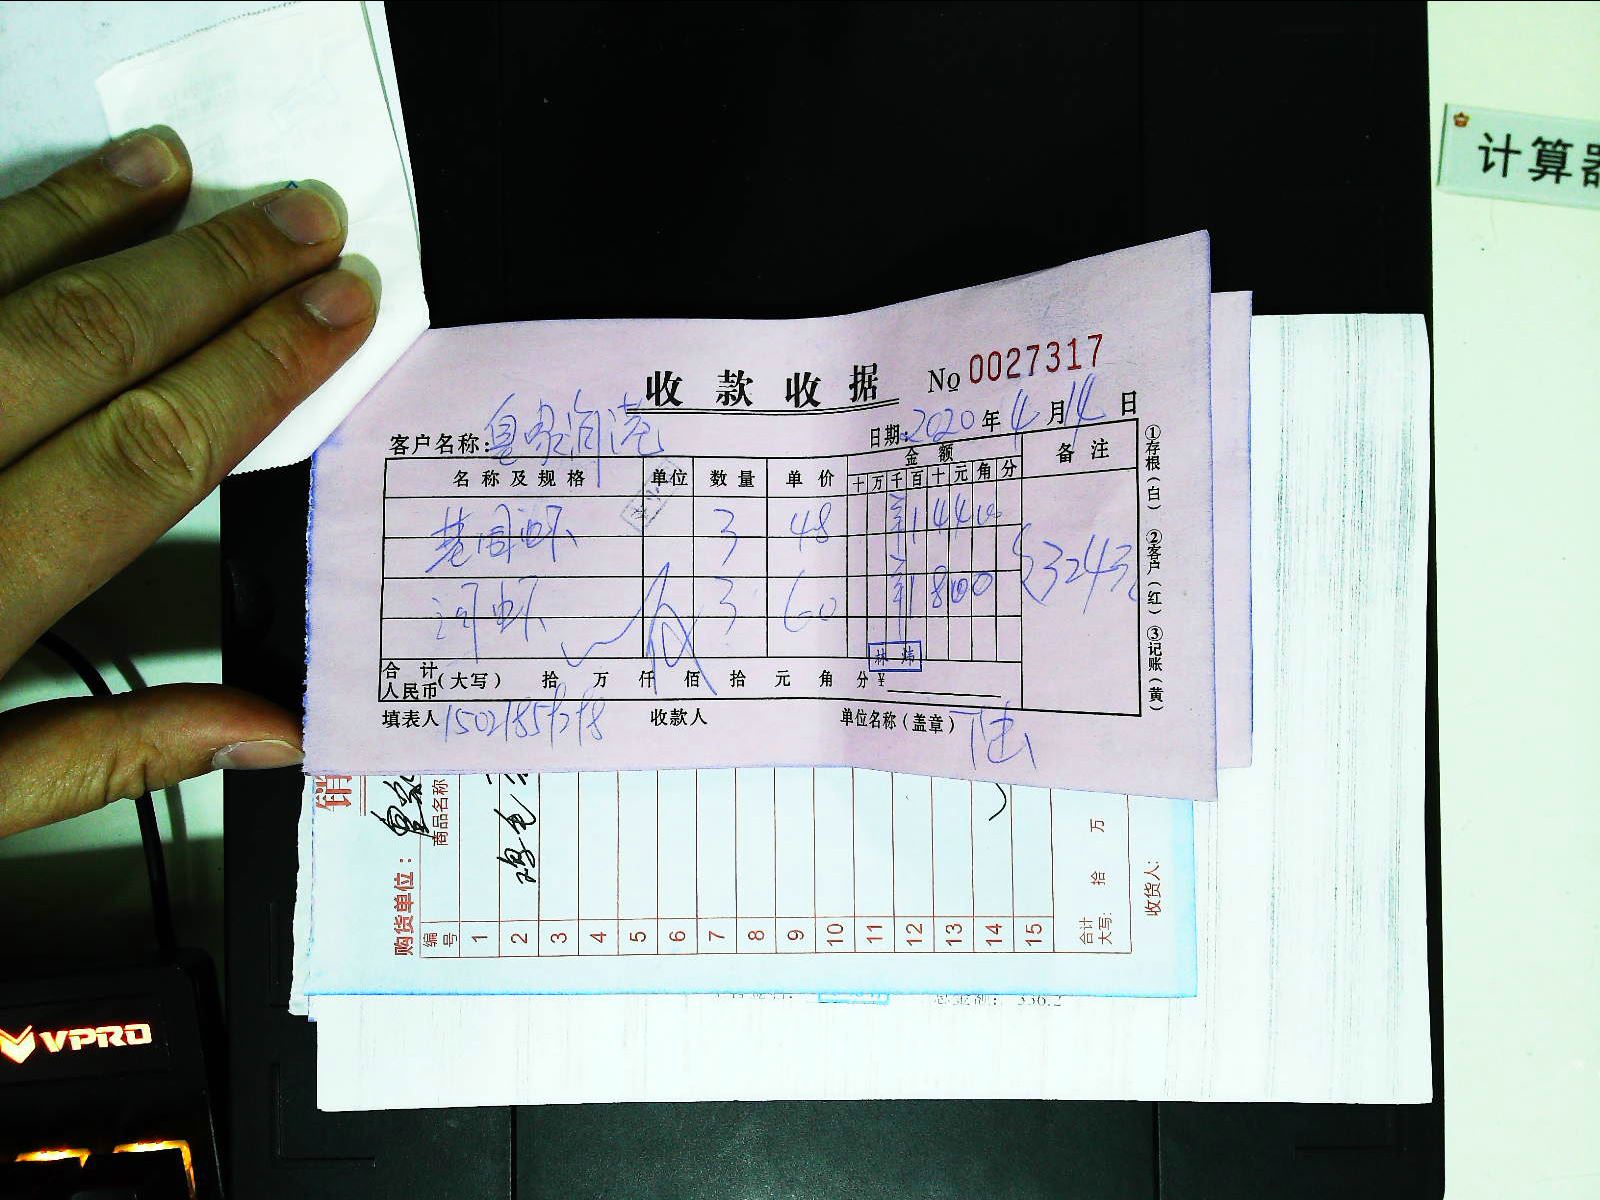 计算器
收款收据 No 0027317
客户名称: 皇家 港
日期: 2020年4月14日
名称及规格 单位 数量 单价 金额 备注
十万千百十元角分
基围虾 3 48 ¥14400 324元
河虾 3 60 ¥18000
林
合计人民币(大写) 拾 万 仟 佰 拾 元 角 分 ¥
填表人 收款人 单位名称(盖章)
①存根(白) ②客户(红) ③记账(黄)
销
购货单位:
编号 商品名称
1
2
3
4
5
6
7
8
9
10
11
12
13
14
15
合计大写: 拾 万
收货人:
总金额: 336.2
VPRO